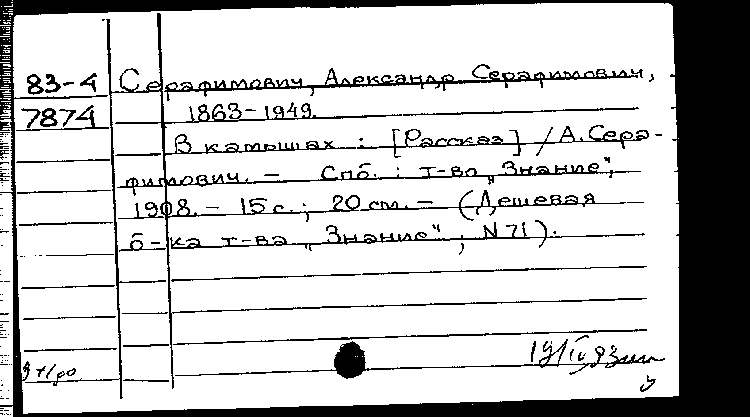 83-4 Серафимович, Александр Серафимович,
7874 1863-1949.
В камышах : [Рассказ] / А. Сера-
фимович. – Спб. : т-во „Знание",
1908. – 15 с. ; 20 см. – (Дешевая
б-ка т-ва „Знание" ; N 71).